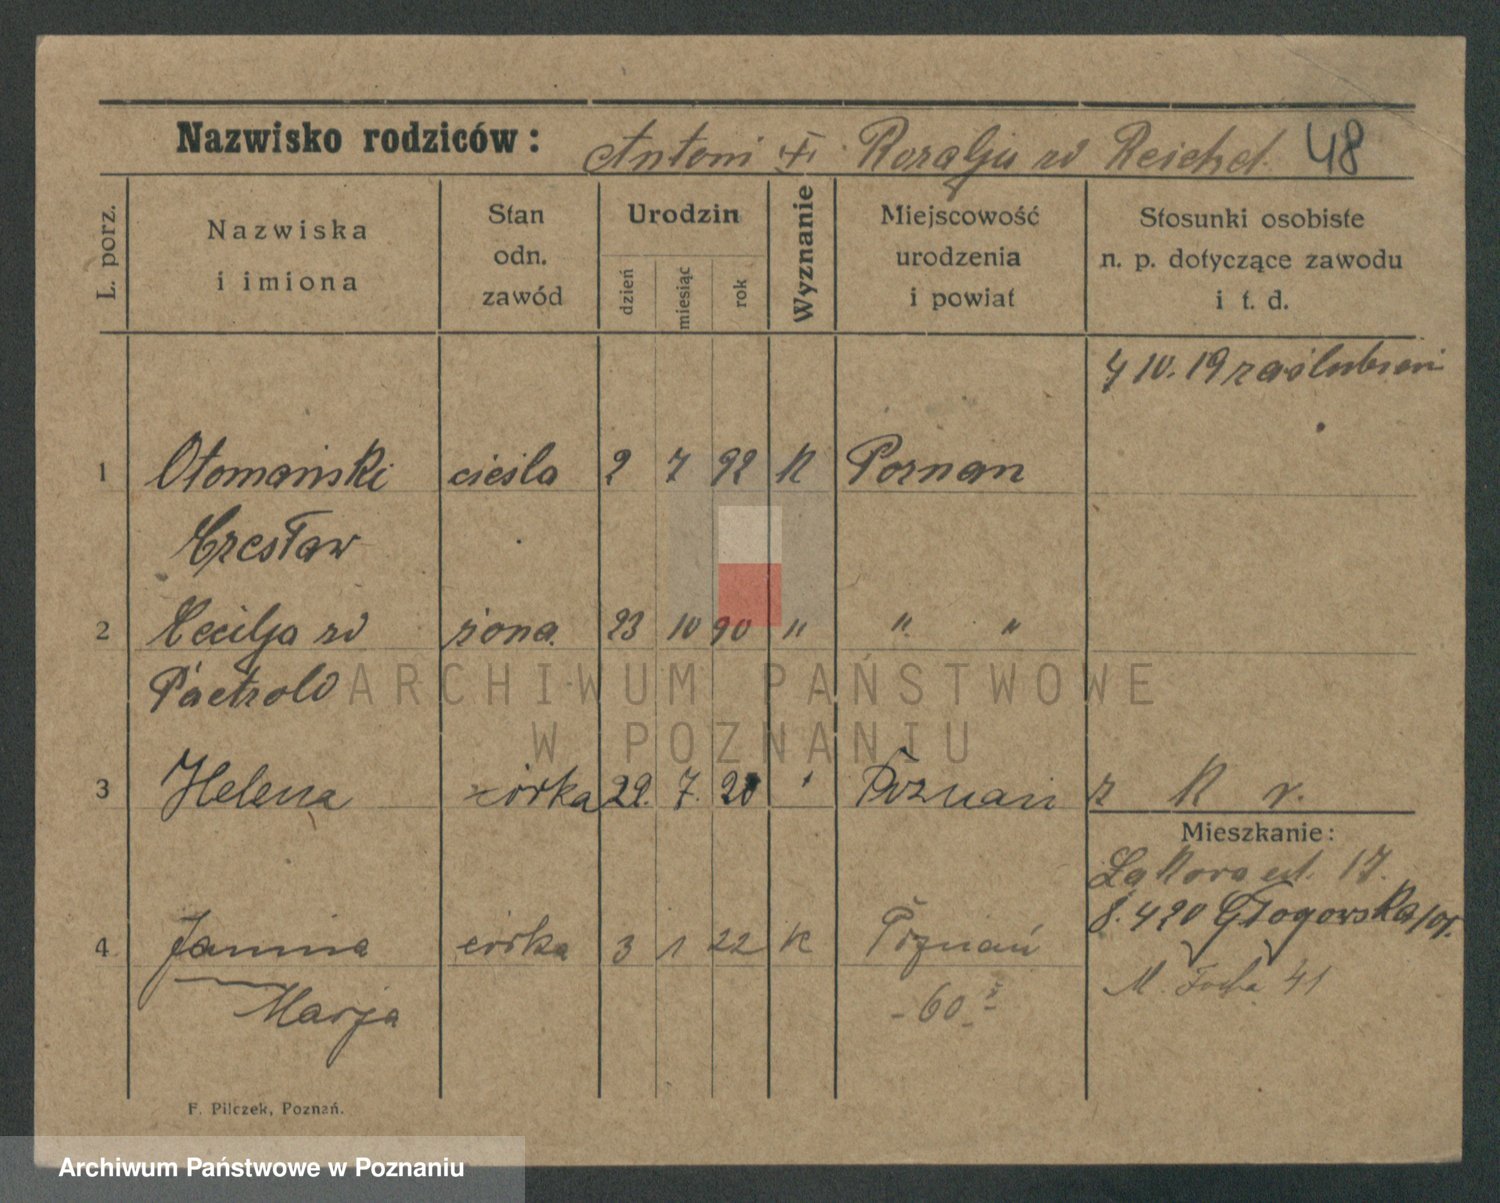 Nazwisko rodziców: Antoni Rozalja zd Reichel 48
L. porz.
Nazwiska i imiona
Stan odn. zawód
Urodzin
dzień miesiąc rok
Wyznanie
Miejscowość urodzenia i powiat
Stosunki osobiste n. p. dotyczące zawodu i t. d.
zaślubieni
1 Otomański cieśla 2 7 92 K Poznań
Czesław
2 Cecilja zd żona 23 10 90 " " "
Paetzold
3 Helena córka 22. 7. 20 ' Poznań z K r.
Mieszkanie:
Łąkowa 17.
4 Janina córka 3 1 22 K Poznań
8. 4 20 Głogowska
M. Focha 41
Marja
-60-
F. Pilczek, Poznań.
ARCHIWUM PAŃSTWOWE
W POZNANIU
Archiwum Państwowe w Poznaniu